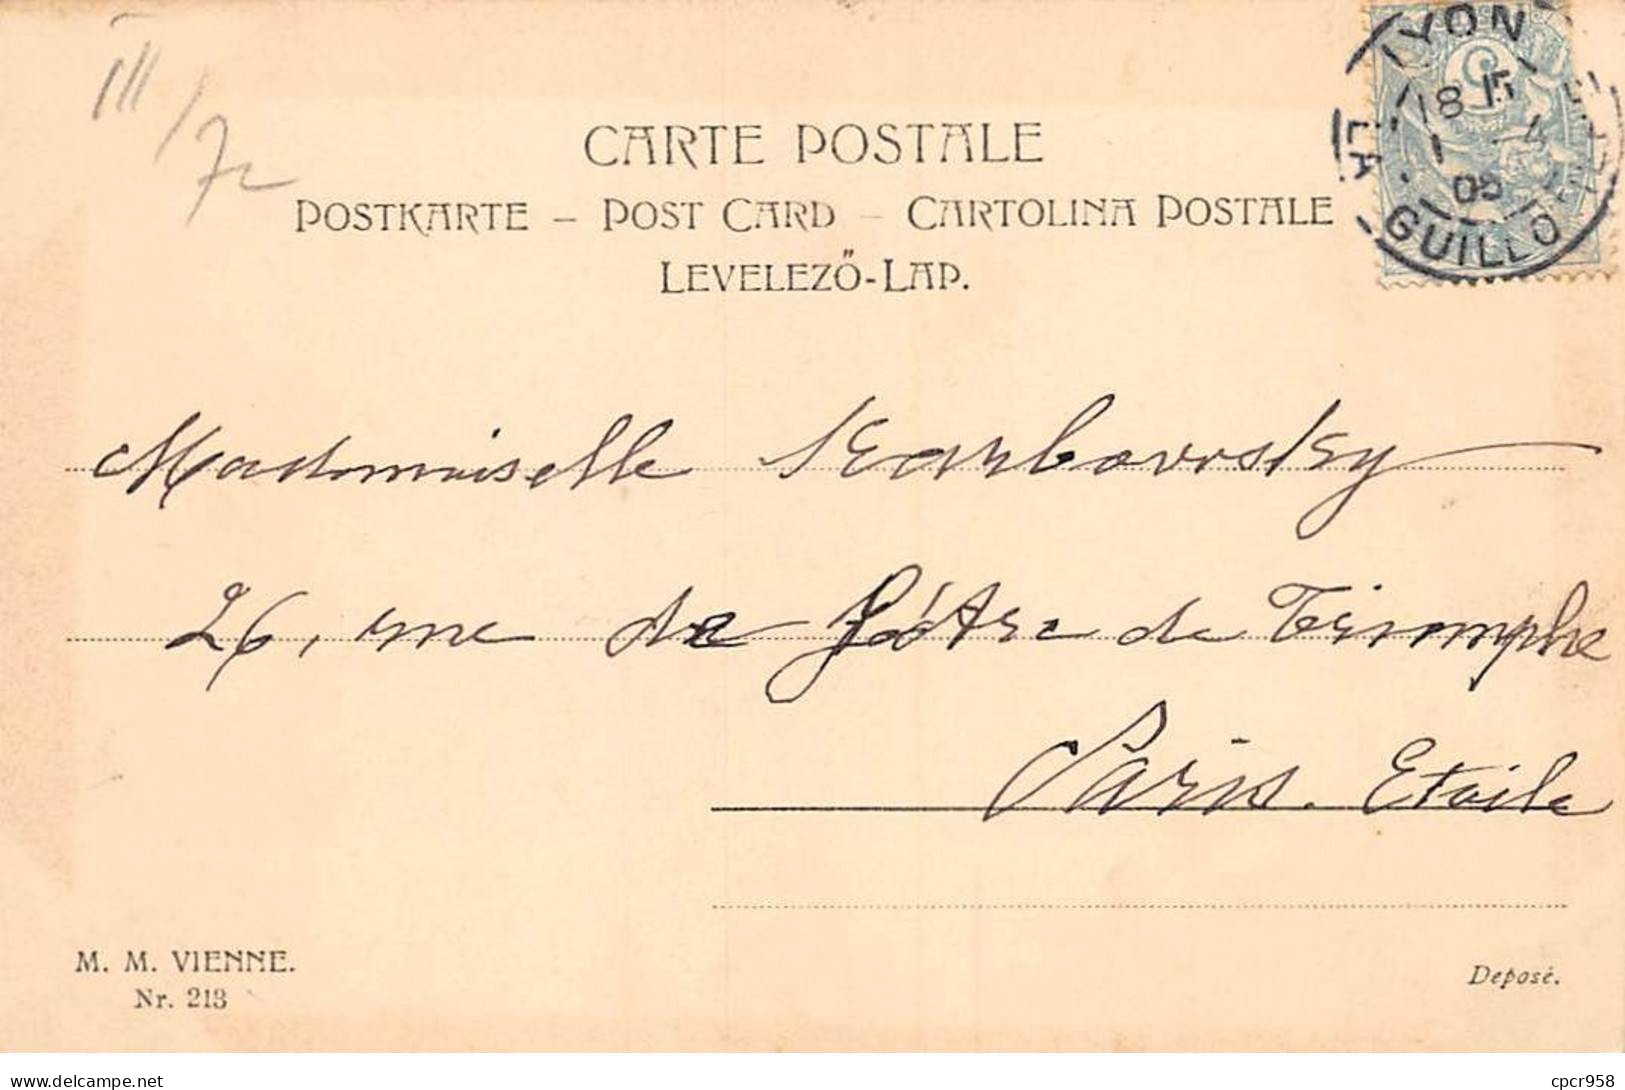 III/72
CARTE POSTALE
POSTKARTE – POST CARD – CARTOLINA POSTALE
LEVELEZŐ-LAP.
LYON
18 15
1 - 4
05
LA GUILLO
5
Mademoiselle Skarbovosky
26, rue de l'Arc de Triomphe
Paris. Etoile
M. M. VIENNE.
Nr. 213
Deposé.
delcampe.net
cpcr958